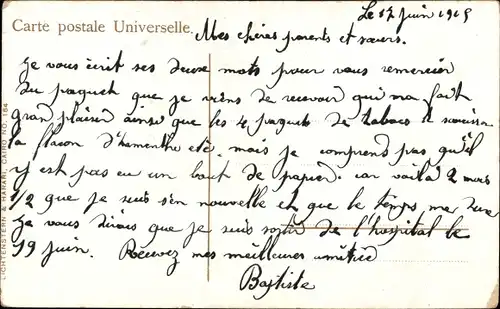 Carte postale Universelle.
Le 17 juin 1915
Mes chères parents et sœurs.
Je vous écrit ses deux mots pour vous remercier
du paquet que je viens de recevoir qui ma fait
grand plaisir ainsi que les 4 paquets de tabacs
la flacon d'hamenthe etc. mais je comprend pas qu'il
y est pas eu un bout de papier. car voilà 2 mois
1/2 que je suis s'en nouvelle et que le temps me dure
Je vous dirais que je suis sortir de l'hospital le
19 juin. Recevez mes meilleures amitiée
Baptiste
LICHTENSTERN & HARARI, CAIRO. NO. 164